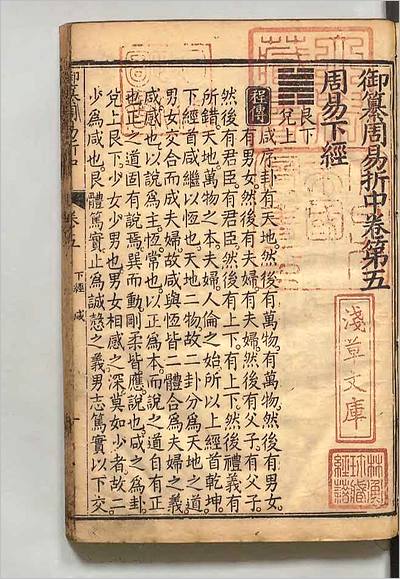 御纂周易折中卷第五
周易下經
䷞ 艮下
兌上
程傳 咸序卦有天地。然後有萬物。有萬物。然後有男女。
有男女。然後有夫婦。有夫婦。然後有父子。有父子。
然後有君臣。有君臣。然後有上下。有上下。然後禮義有
所錯。天地萬物之本。夫婦人倫之始。所以上經首乾坤。
下經首咸繼以恆也。天地二物。故二卦分為天地之道。
男女交合而成夫婦。故咸與恆皆二體合為夫婦之義。
咸感也。以說為主。恆常也。以正為本。而說之道自有正
也。正之道固有說焉。巽而動。剛柔皆應。說也。咸之為卦。
兌上艮下。少女少男也。男女相感之深。莫如少者。故二
少為咸也。艮體篤實。止為誠慤之義。男志篤實以下交
御纂周易折中
卷五
下經 咸
淺草文庫